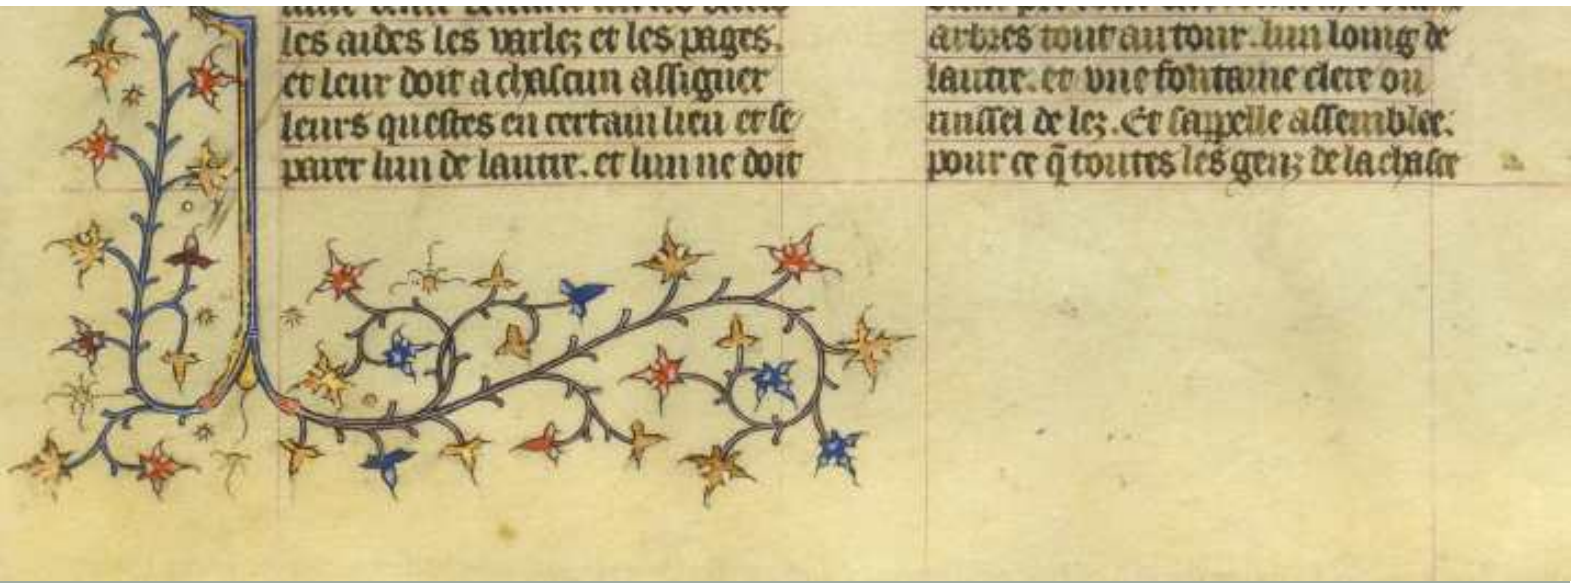 les aides les varlez et les pages.
et leur doit a chascun assigner
leurs questes en certain lieu et se
parer lun de lautre. et lun ne doit
arbres tout autour. lun loing de
lautre. et une fontaine clere ou
russel de lez. Et sappelle assemblee.
pour ce q̃ toutes les genz de la chasce